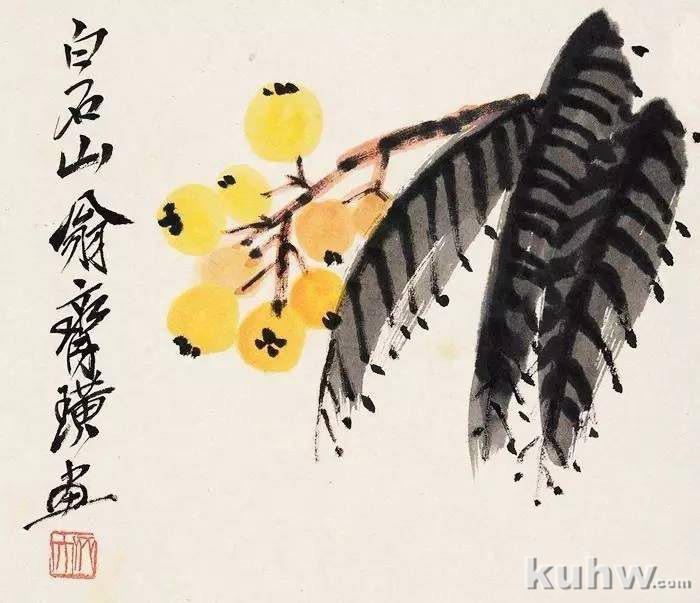 白石山翁齊璜畫
kuhw.com